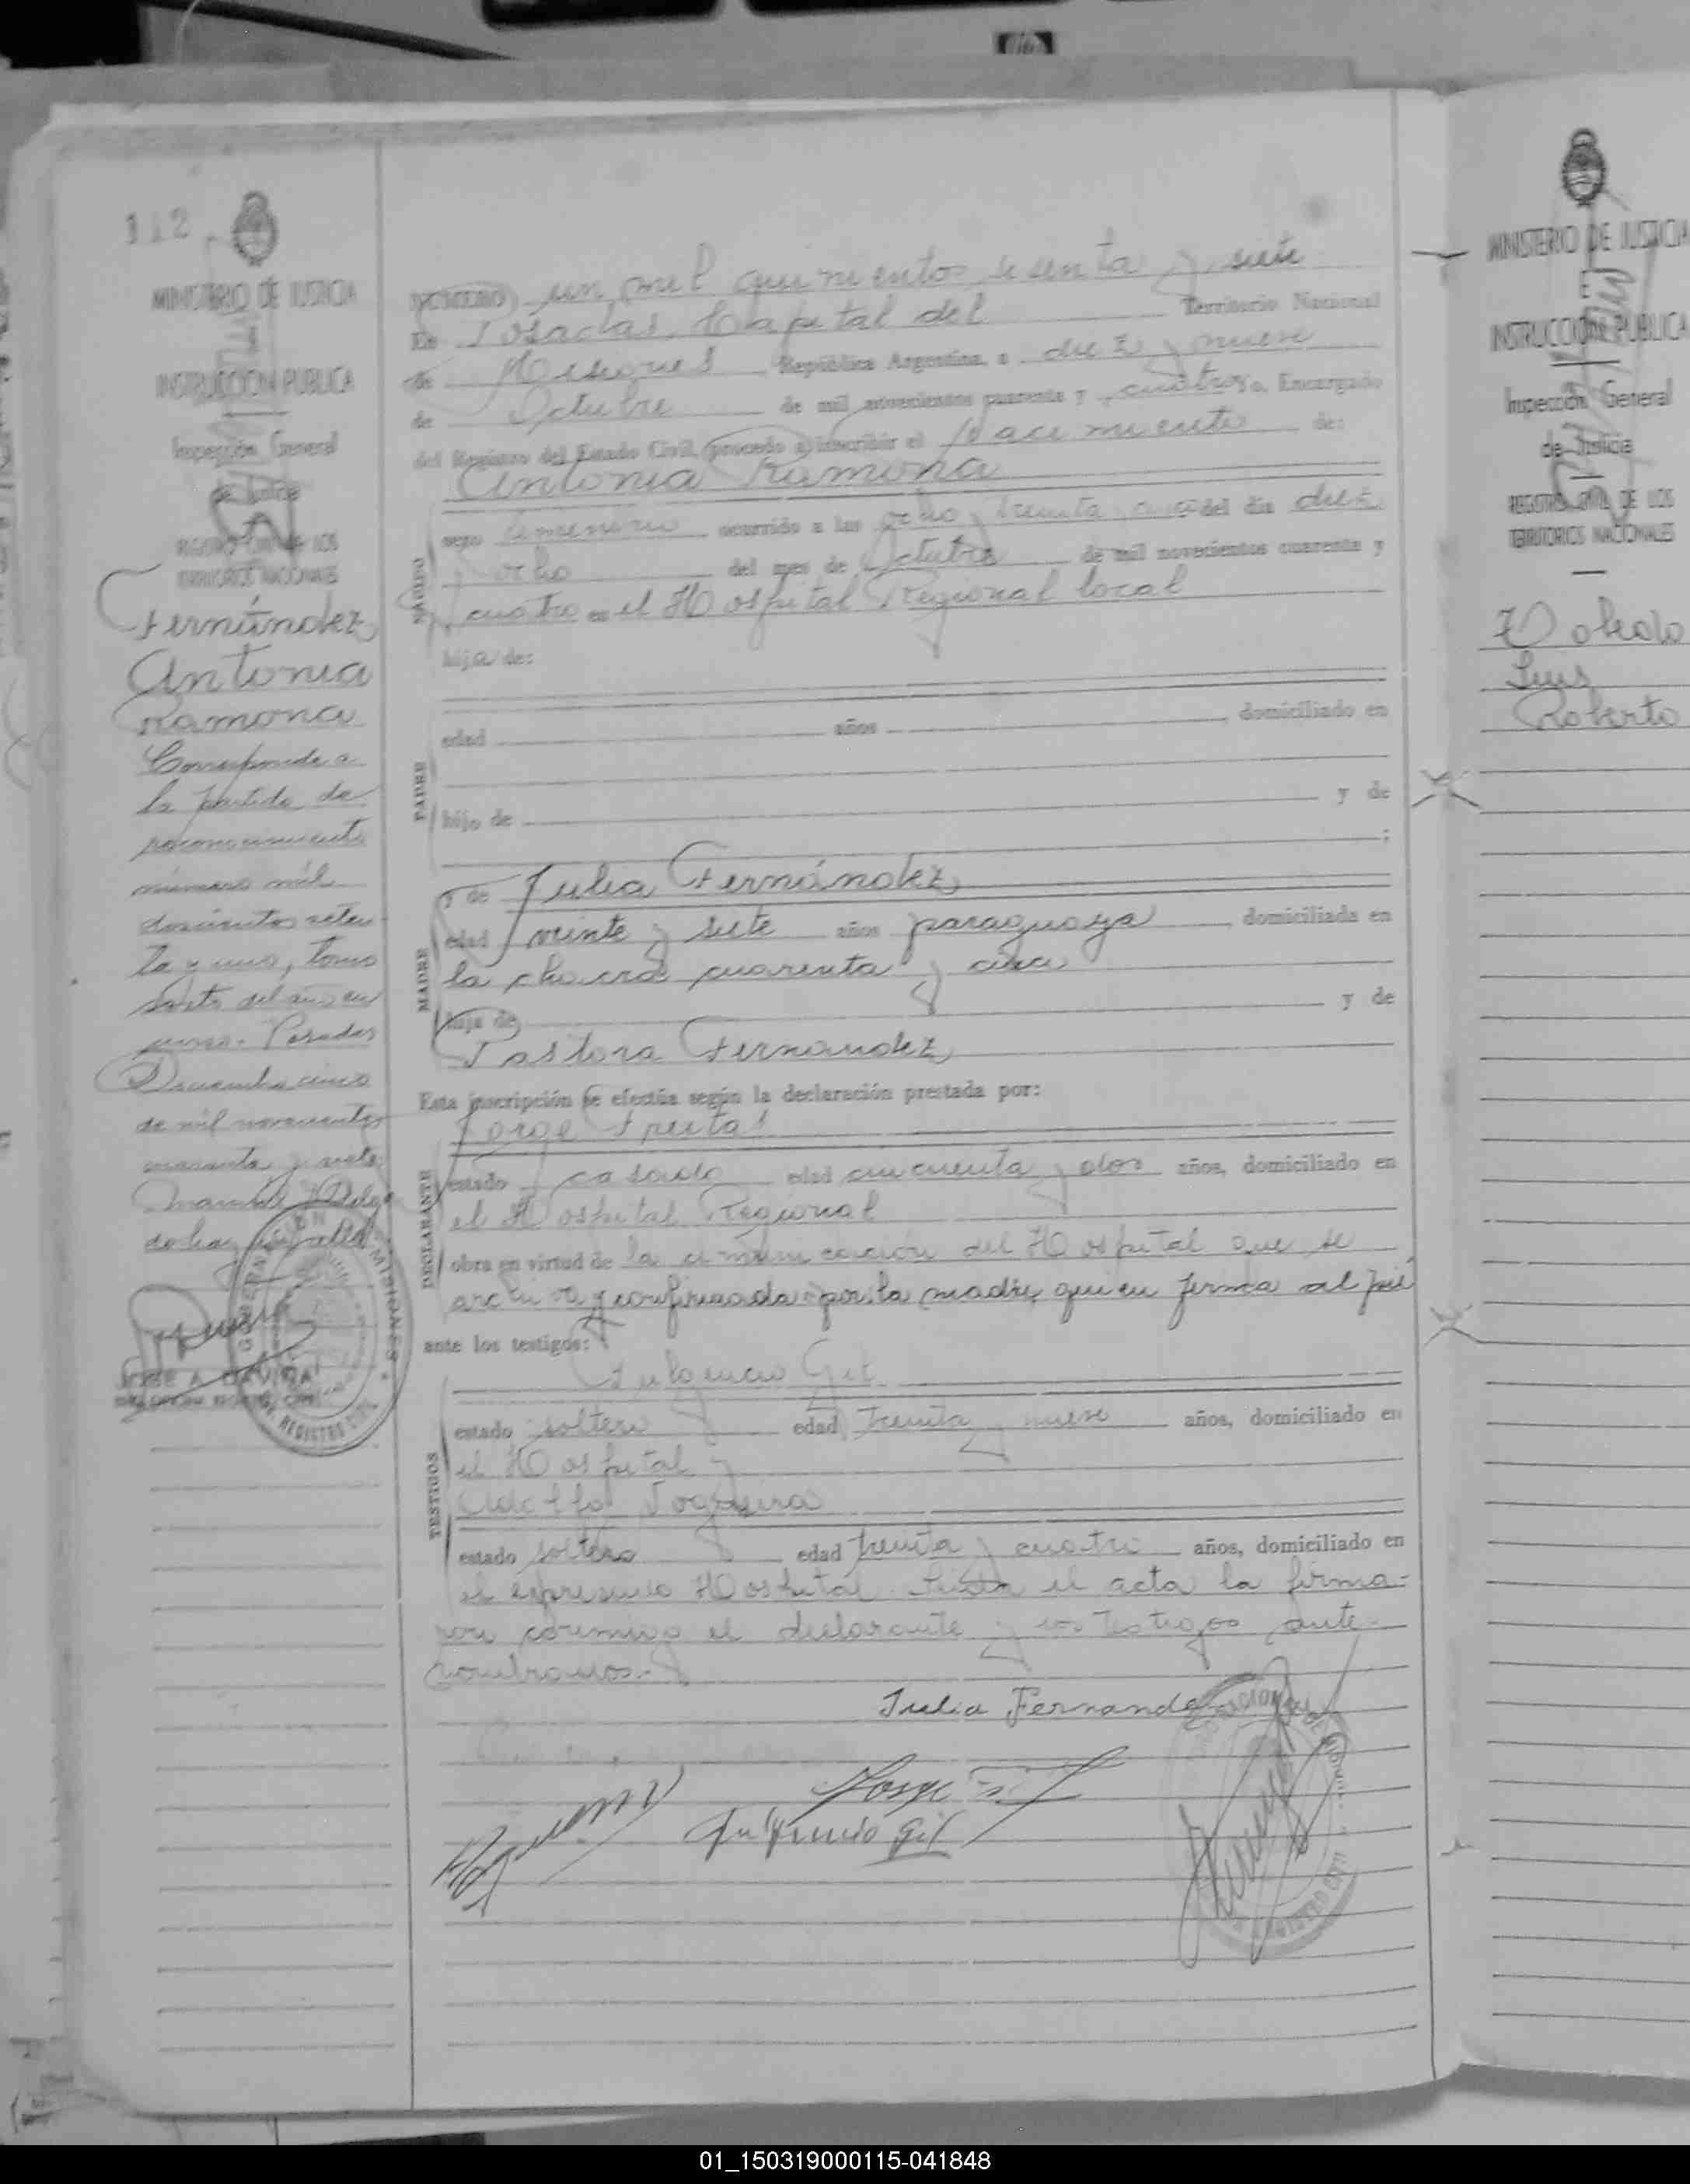 112
MINISTERIO DE JUSTICIA
E
INSTRUCCION PUBLICA
Inspección General
de Justicia
REGISTRO CIVIL DE LOS
TERRITORIOS NACIONALES
Fernández
Antonia
Ramona
Corresponde a
la partida de
reconocimiento
número mil
doscientos seten
ta y uno, tomo
sexto del año en
curso. Posadas
Diciembre cinco
de mil novecientos
cuarenta y siete
JOSE A.
NUMERO un mil quinientos sesenta y siete
En Posadas, Capital del Territorio Nacional
de Misiones República Argentina, a diez y nueve
de Octubre de mil novecientos cuarenta y cuatro yo, Encargado
del Registro del Estado Civil, procedo a inscribir el Nacimiento de:
Antonia Ramona
NACIDO
sexo femenino ocurrido a las ocho y treinta del día diez
y ocho del mes de Octubre de mil novecientos cuarenta y
cuatro en el Hospital Regional local
hija de:
PADRE
edad años domiciliado en
hijo de y de
;
MADRE
y de Julia Fernández
edad veinte y siete años paraguaya domiciliada en
la chacra cuarenta y cinco
hija de y de
Pastora Fernandez
Esta inscripción se efectúa según la declaración prestada por:
DECLARANTE
Jorge Freitas
estado casado edad cincuenta y dos años, domiciliado en
el Hospital Regional
obra en virtud de la comunicación del Hospital que se
archiva y confirmada por la madre quien firma al pié
ante los testigos:
TESTIGOS
Fulgencio Gil
estado soltero edad treinta y nueve años, domiciliado en
el Hospital y
Adolfo
estado soltero edad treinta y cuatro años, domiciliado en
el expresado Hospital. Leída el acta la firma-
ron conmigo el declarante y los testigos ante-
nombrados.-
Julia Fernandez
Jorge
Fulgencio Gil
MINISTERIO DE JUSTICIA
E
INSTRUCCION PUBLICA
Inspección General
de Justicia
REGISTRO CIVIL DE LOS
TERRITORIOS NACIONALES
Luis
Roberto
01_150319000115-041848